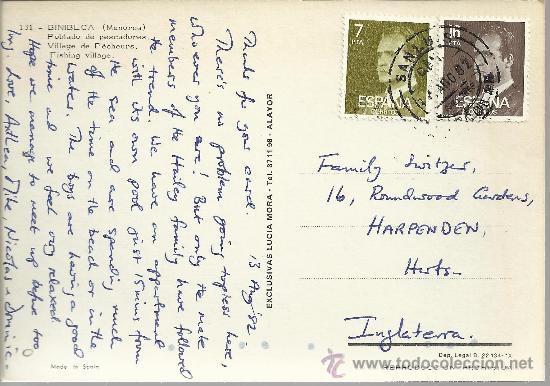 131 - BINIBECA (Menorca)
Poblado de pescadores.
Village de Pêcheurs.
Fishing village.
13 Aug '82.
Thanks for your card.
There's no problem going topless here,
whoever you are! But only the male
members of the Hailey family have followed
the trend. We have an appartment
with its own pool just 15 mins from
the sea and are spending much
of the time on the beach or in the
water. The boys are having a good
time and we feel very relaxed.
Hope we manage to meet up before too
long. Love, Anthea, Mike, Nicolas & Dominic.
Made in Spain
EXCLUSIVAS LUCIA MORA - Tel. 371198 - ALAYOR
7
PTA
ESPAÑA
CORREOS
16
PTA
ESPAÑA
CORREOS
Family Switzer,
16, Roundwood Gardens,
HARPENDEN,
Herts.
Inglaterra.
Dep. Legal B. 22
todocoleccion.net